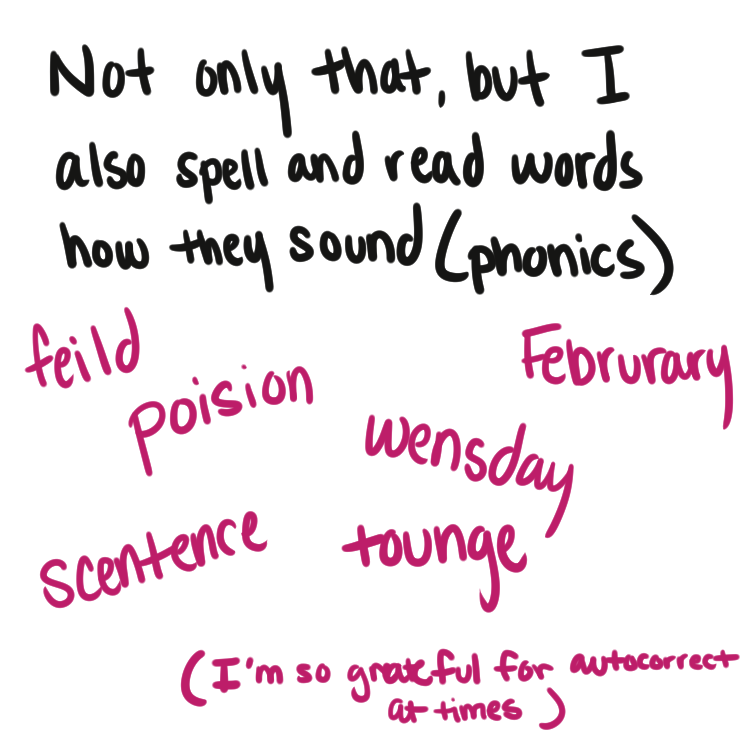 Not only that, but I
also spell and read words
how they sound (phonics)
feild
Februrary
poision
wensday
scentence
tounge
(I'm so grateful for autocorrect
at times)